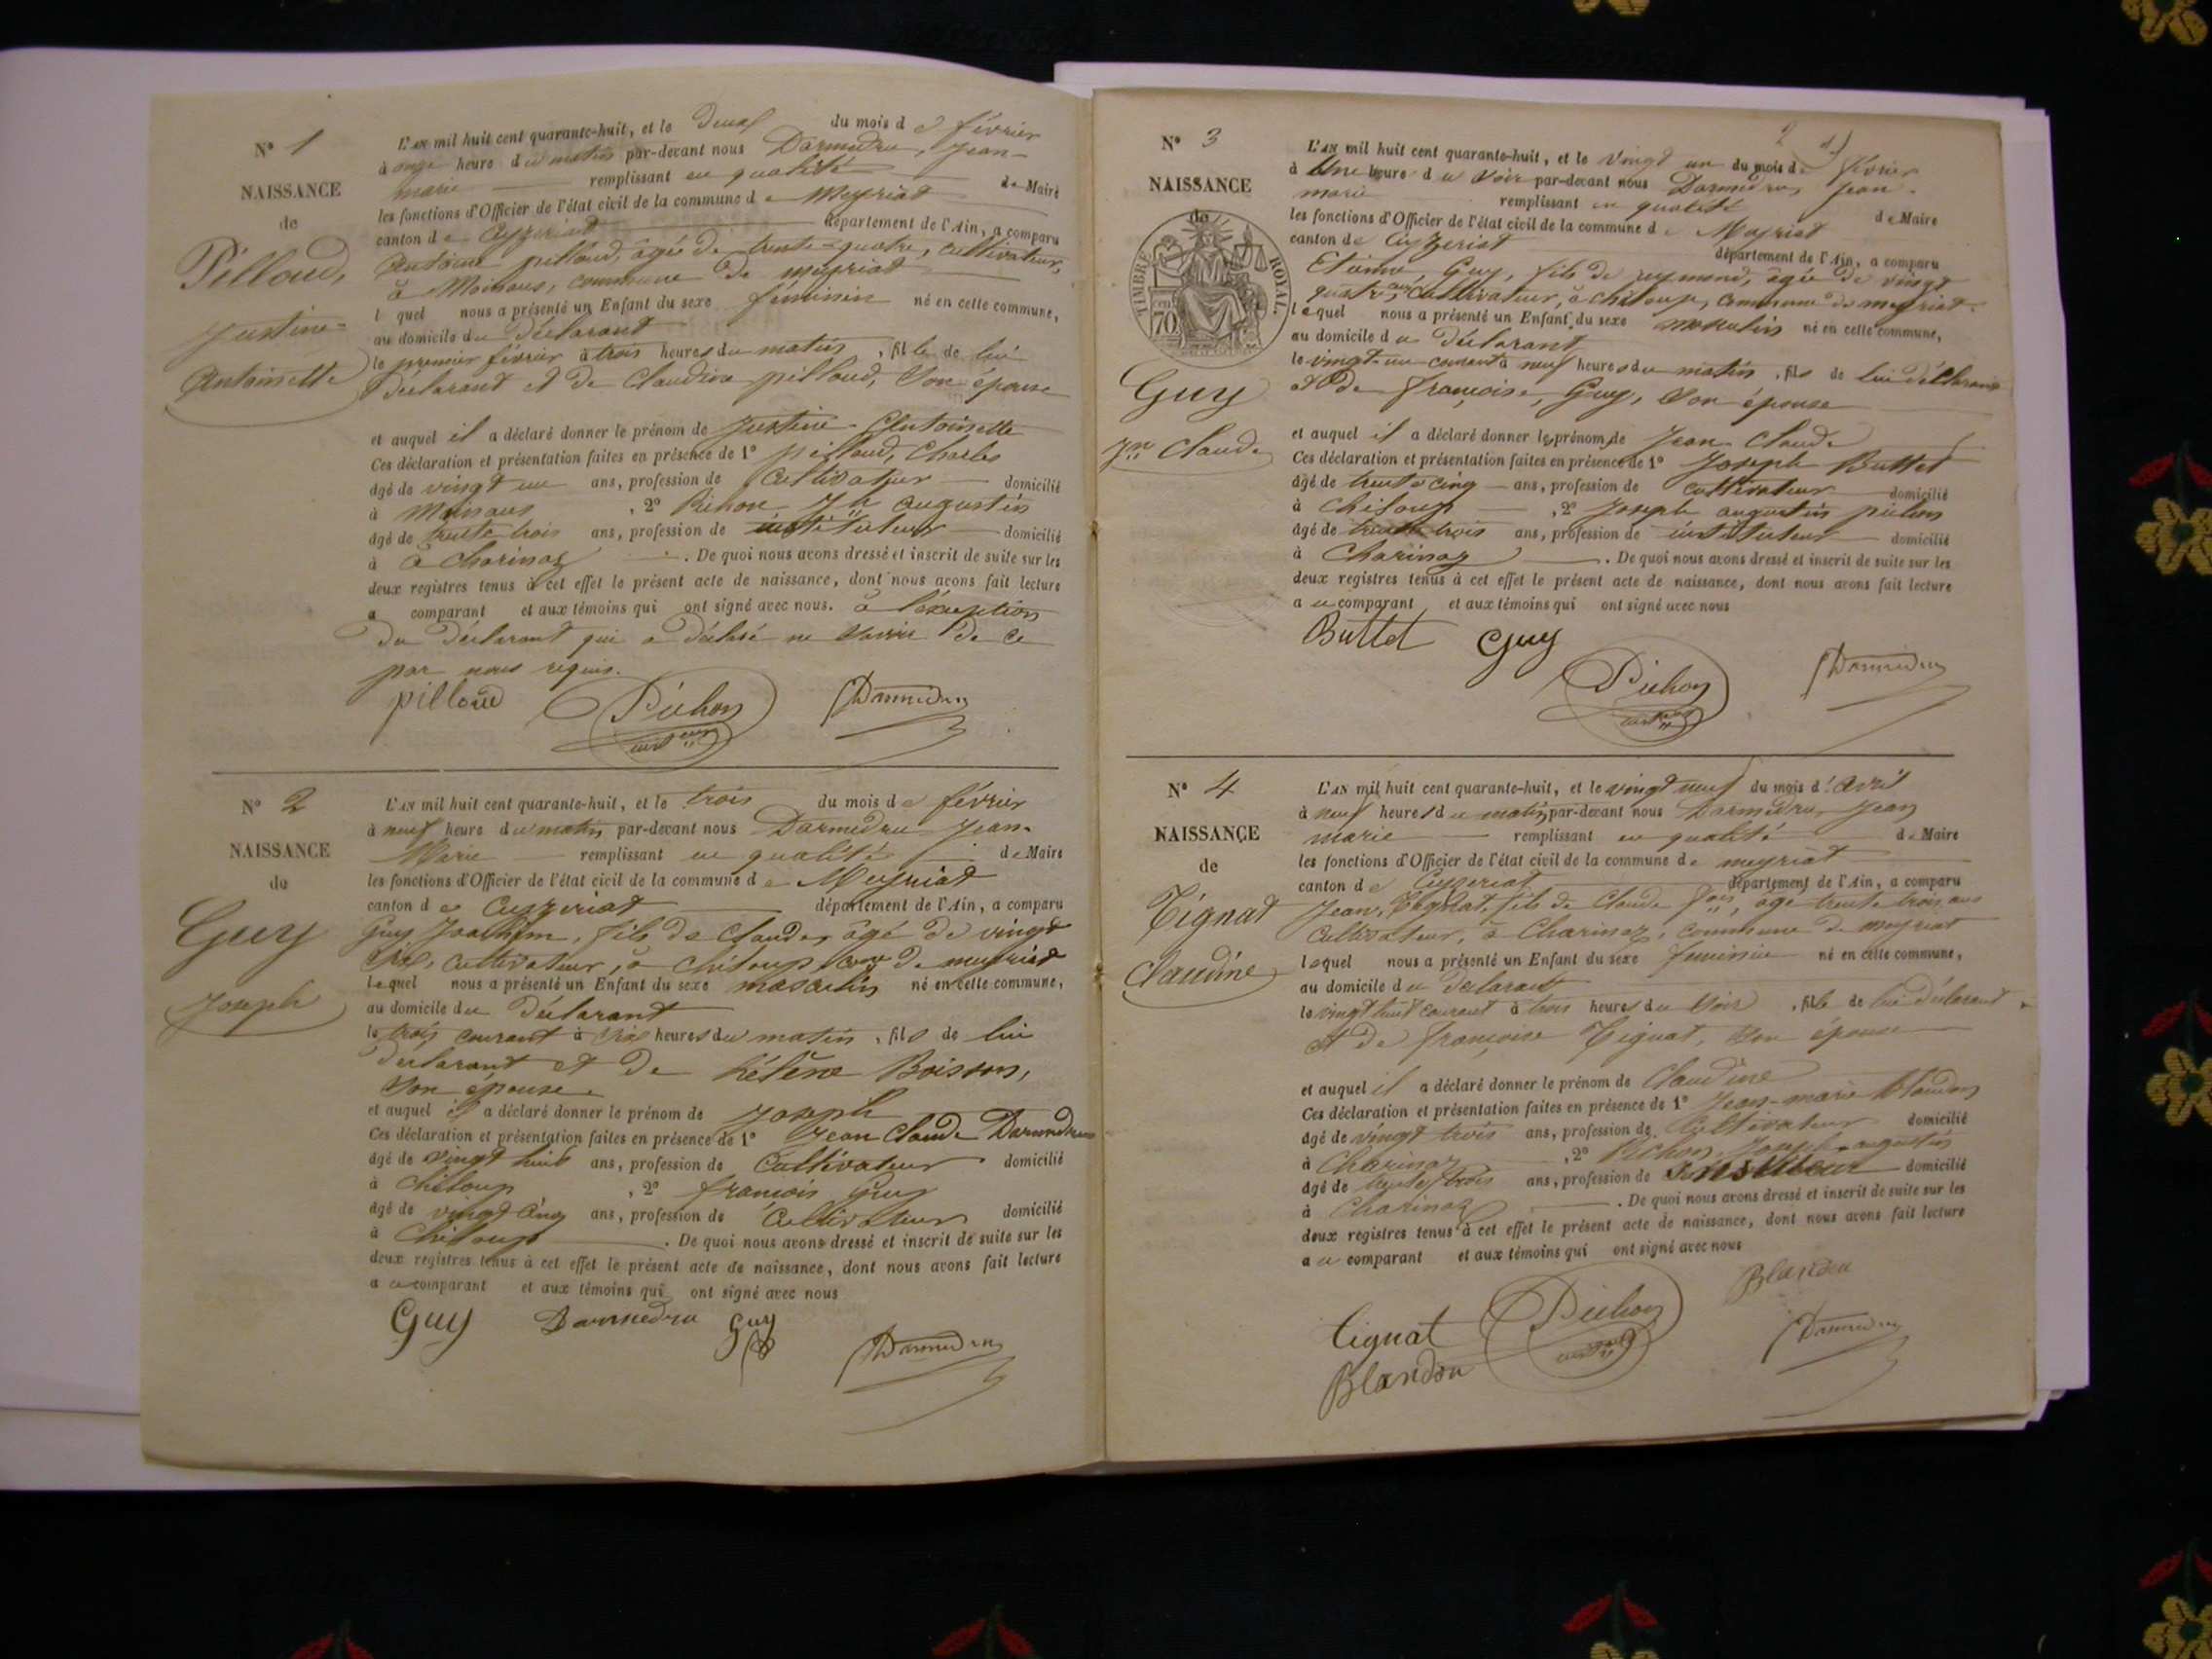 N° 1
NAISSANCE
de
Pilloud,
Justine-
Antoinette
L'AN mil huit cent quarante-huit, et le deux du mois de février
à onze heure du matin par-devant nous Darmedru, Jean-
marie remplissant en qualité de Maire
les fonctions d'Officier de l'état civil de la commune de Meyriat
canton de Ceyzeriat département de l'Ain, a comparu
Antoine pilloud, âgé de trente-quatre, cultivateur,
à commune de meyriat
l quel nous a présenté un Enfant du sexe féminin né en cette commune,
au domicile du Déclarant
le premier février à trois heures du matin, fille de lui
Déclarant et de Claudine pilloud, Son épouse
et auquel il a déclaré donner le prénom de Justine-Antoinette
Ces déclaration et présentation faites en présence de 1° pilloud, Charles
âgé de vingt un ans, profession de Cultivateur domicilié
à , 2° Pichon Jh augustin
âgé de trente trois ans, profession de instituteur domicilié
à à Charinaz. De quoi nous avons dressé et inscrit de suite sur les
deux registres tenus à cet effet le présent acte de naissance, dont nous avons fait lecture
a comparant et aux témoins qui ont signé avec nous. à l'exception
du Déclarant qui a déclaré ne savoir de ce
par nous requis.
pilloud Pichon Darmedru
N° 2
NAISSANCE
de
Guy
Joseph
L'AN mil huit cent quarante-huit, et le trois du mois de février
à neuf heure du matin par-devant nous Darmedru Jean-
Marie remplissant en qualité de Maire
les fonctions d'Officier de l'état civil de la commune de Meyriat
canton de Ceyzeriat département de l'Ain, a comparu
Guy Joachim, fils de Claude, âgé de vingt
six, cultivateur, à Chiloup, Cne de meyriat
lequel nous a présenté un Enfant du sexe masculin né en cette commune,
au domicile du Déclarant
le trois courant à six heures du matin, fils de lui
Déclarant et de hélène Boisson,
Son épouse.
et auquel il a déclaré donner le prénom de Joseph
Ces déclaration et présentation faites en présence de 1° Jean Claude Darmedru
âgé de vingt huit ans, profession de Cultivateur domicilié
à Chiloup, 2° françois Guy
âgé de vingt cinq ans, profession de Cultivateur domicilié
à Chiloup. De quoi nous avons dressé et inscrit de suite sur les
deux registres tenus à cet effet le présent acte de naissance, dont nous avons fait lecture
a u comparant et aux témoins qui ont signé avec nous
Guy Darmedru Guy
Darmedru
2
N° 3
NAISSANCE
de
TIMBRE ROYAL
70
Guy
Jn Claude
L'AN mil huit cent quarante-huit, et le vingt un du mois de février
à Une heure du soir par-devant nous Darmedru, Jean-
marie remplissant en qualité de Maire
les fonctions d'Officier de l'état civil de la commune de Meyriat
canton de Ceyzeriat département de l'Ain, a comparu
Etienne, Guy, fils de reymond, âgé de vingt
quatre ans, cultivateur, à chiloup, commune de meyriat.
lequel nous a présenté un Enfant du sexe masculin né en cette commune,
au domicile du Déclarant
le vingt-un courant à neuf heures du matin, fils de lui déclarant
et de françoise, Guy, Son épouse
et auquel il a déclaré donner le prénom de Jean Claude
Ces déclaration et présentation faites en présence de 1° Joseph Buttet
âgé de trente cinq ans, profession de cultivateur domicilié
à Chiloup, 2° Joseph augustin pichon
âgé de trente trois ans, profession de instituteur domicilié
à Charinaz. De quoi nous avons dressé et inscrit de suite sur les
deux registres tenus à cet effet le présent acte de naissance, dont nous avons fait lecture
a u comparant et aux témoins qui ont signé avec nous
Buttet Guy
Pichon Darmedru
N° 4
NAISSANCE
de
Tignat
Claudine
L'AN mil huit cent quarante-huit, et le vingt neuf du mois d'avril
à neuf heures du matin par-devant nous Darmedru, Jean
marie remplissant en qualité de Maire
les fonctions d'Officier de l'état civil de la commune de meyriat
canton de Ceyzeriat département de l'Ain, a comparu
Jean, Tignat, fils de Claude fois, âgé trente trois ans
Cultivateur, à Charinaz, commune de meyriat
lequel nous a présenté un Enfant du sexe feminin né en cette commune,
au domicile du déclarant
le vingt huit courant à trois heures du soir, fille de lui déclarant
et de françoise Tignat, Son épouse
et auquel il a déclaré donner le prénom de Claudine
Ces déclaration et présentation faites en présence de 1° Jean-marie Blandon
âgé de vingt trois ans, profession de Cultivateur domicilié
à Charinaz, 2° Pichon, Joseph-augustin
âgé de trente trois ans, profession de instituteur domicilié
à Charinaz. De quoi nous avons dressé et inscrit de suite sur les
deux registres tenus à cet effet le présent acte de naissance, dont nous avons fait lecture
a u comparant et aux témoins qui ont signé avec nous
Blandon
Tignat Pichon Darmedru
Blandon